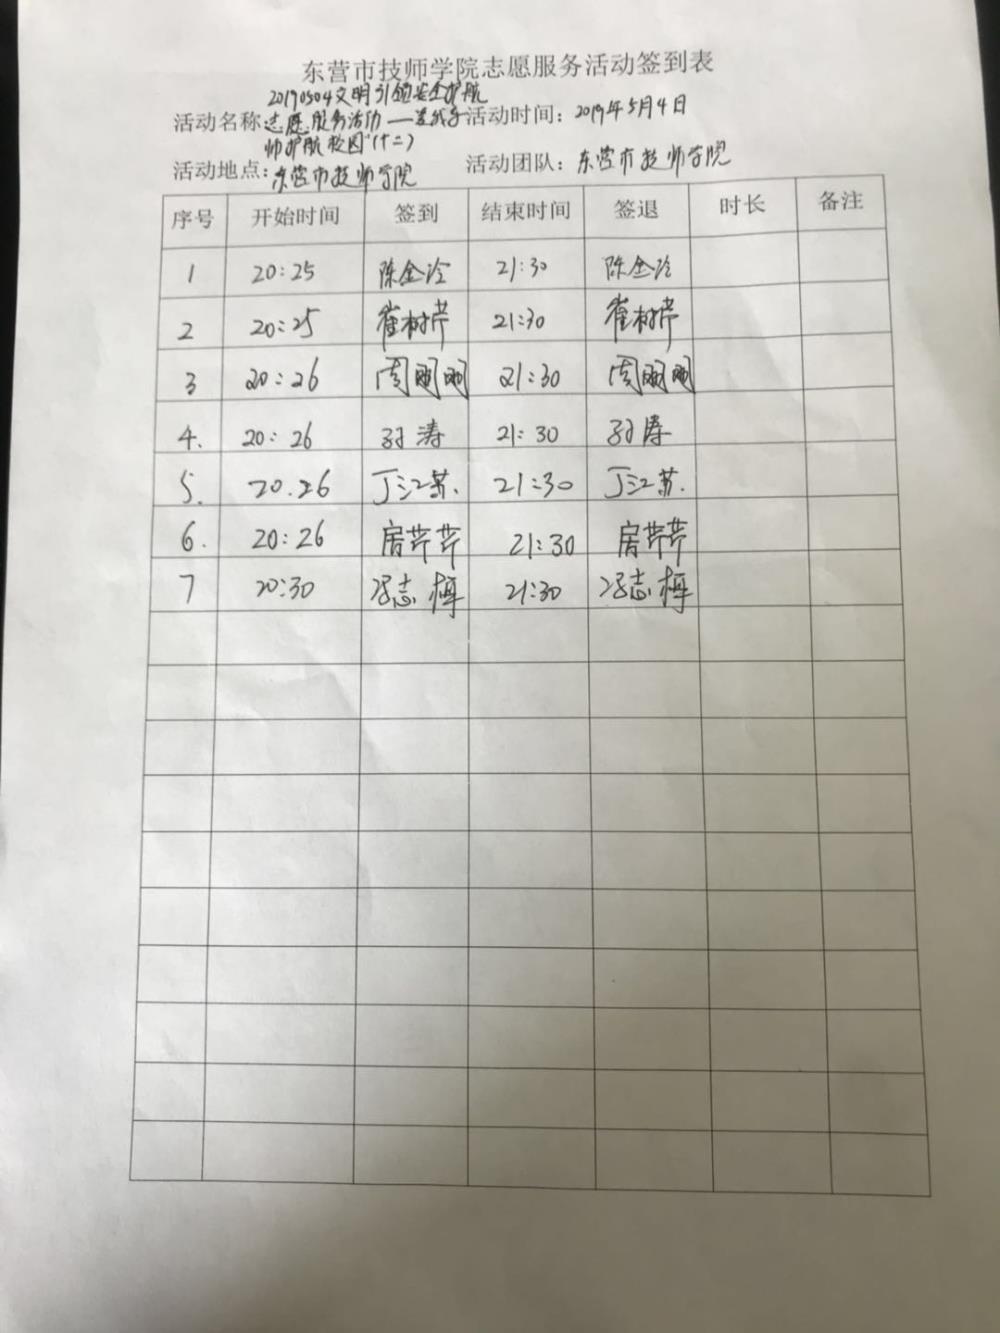 东营市技师学院志愿服务活动签到表
20190504文明引领安全护航
活动名称:志愿服务活动 活动时间: 2019年5月4日
师护航校园"(十二)
活动地点:东营市技师学院 活动团队: 东营市技师学院
序号 开始时间 签到 结束时间 签退 时长 备注
1 20:25 陈金泠 21:30 陈金泠
2 20:25 崔树芹 21:30 崔树芹
3 20:26 周明明 21:30 周明明
4. 20:26 孙涛 21:30 孙涛
5. 20.26 丁江苏. 21:30 丁江苏.
6. 20:26 房芹芹 21:30 房芹芹
7 20:30 冯志梅 21:30 冯志梅